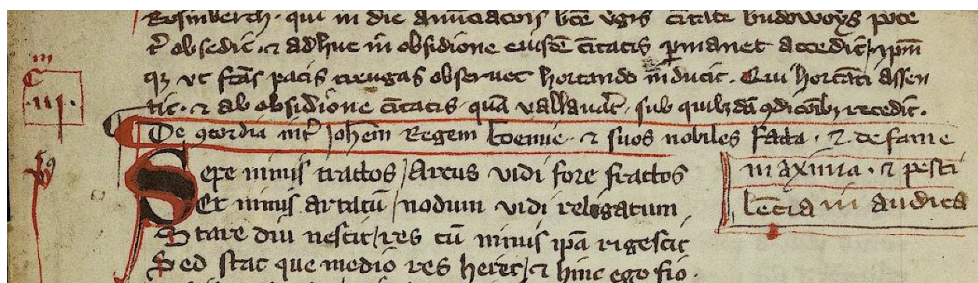 Rosmberch · qui in die anūciacōis btē v̾gis cītatē budowoys potē
t̾ obsedit · ⁊ adhuc in obsidione eiusdē cītatis p̱manet accedit / ip̄m
qꝫ vt sc̄as pacis treugas obseruet hortando inducit · Qui hortāti assen
tit · ⁊ ab obsidione cītatis quā vallauāt · sub quibꝫdā ꝯdicōibꝫ recedit ·
De ꝯcordia int̾ Joh̄em Regem boemie · ⁊ suos nobiles facta · ⁊ de fame
maxima · ⁊ pesti
lēcia in audita
Sepe nimis tractos / Arcus vidi fore fractos
Et nimis artatū / nodum vidi relegatum
Stare diu nescit / res cū nimis ip̄a rigescit
Sed stat que medio res heret / ⁊ hinc ego fio ·